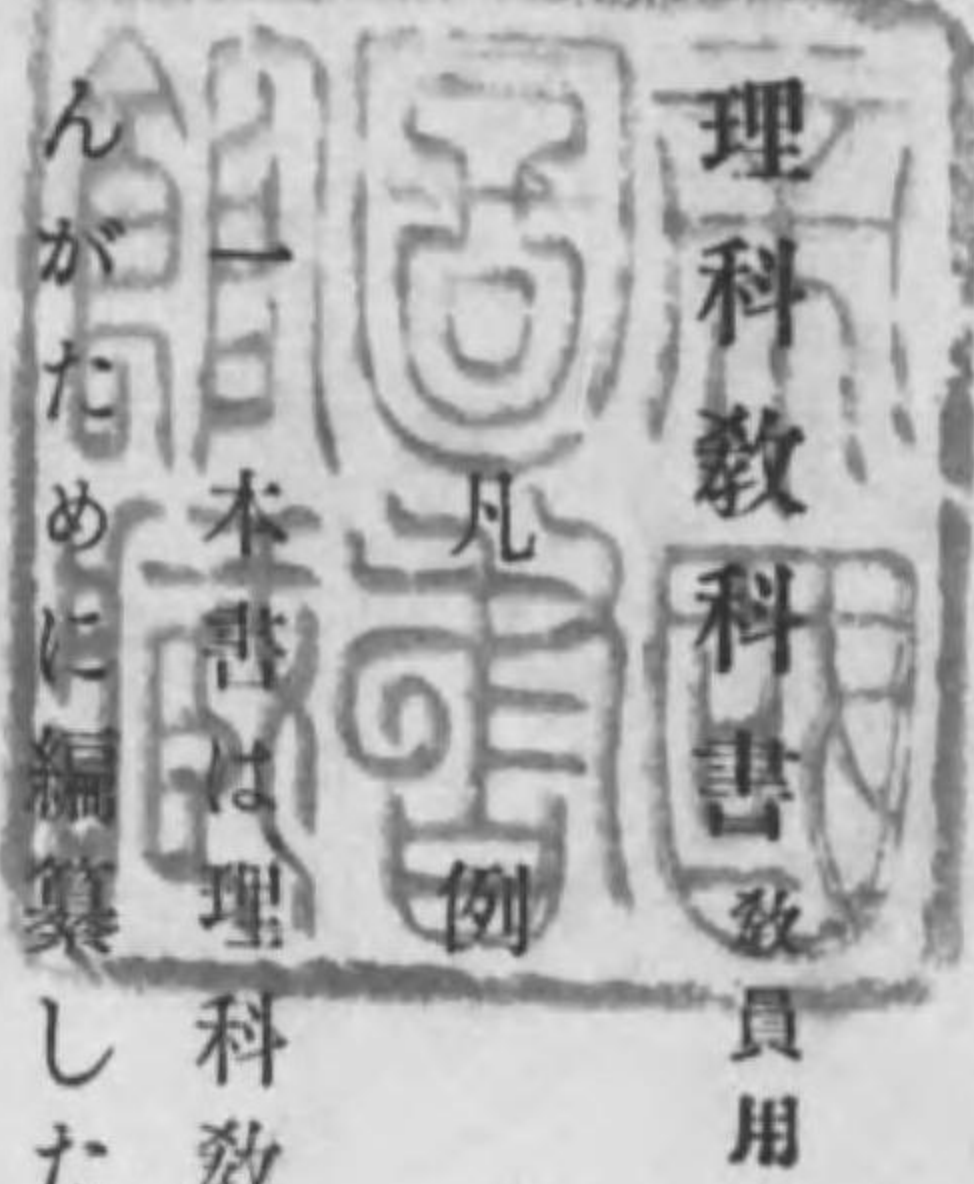 理科敎科書敎員用
凡例
一本書は理科敎
んがために編纂した